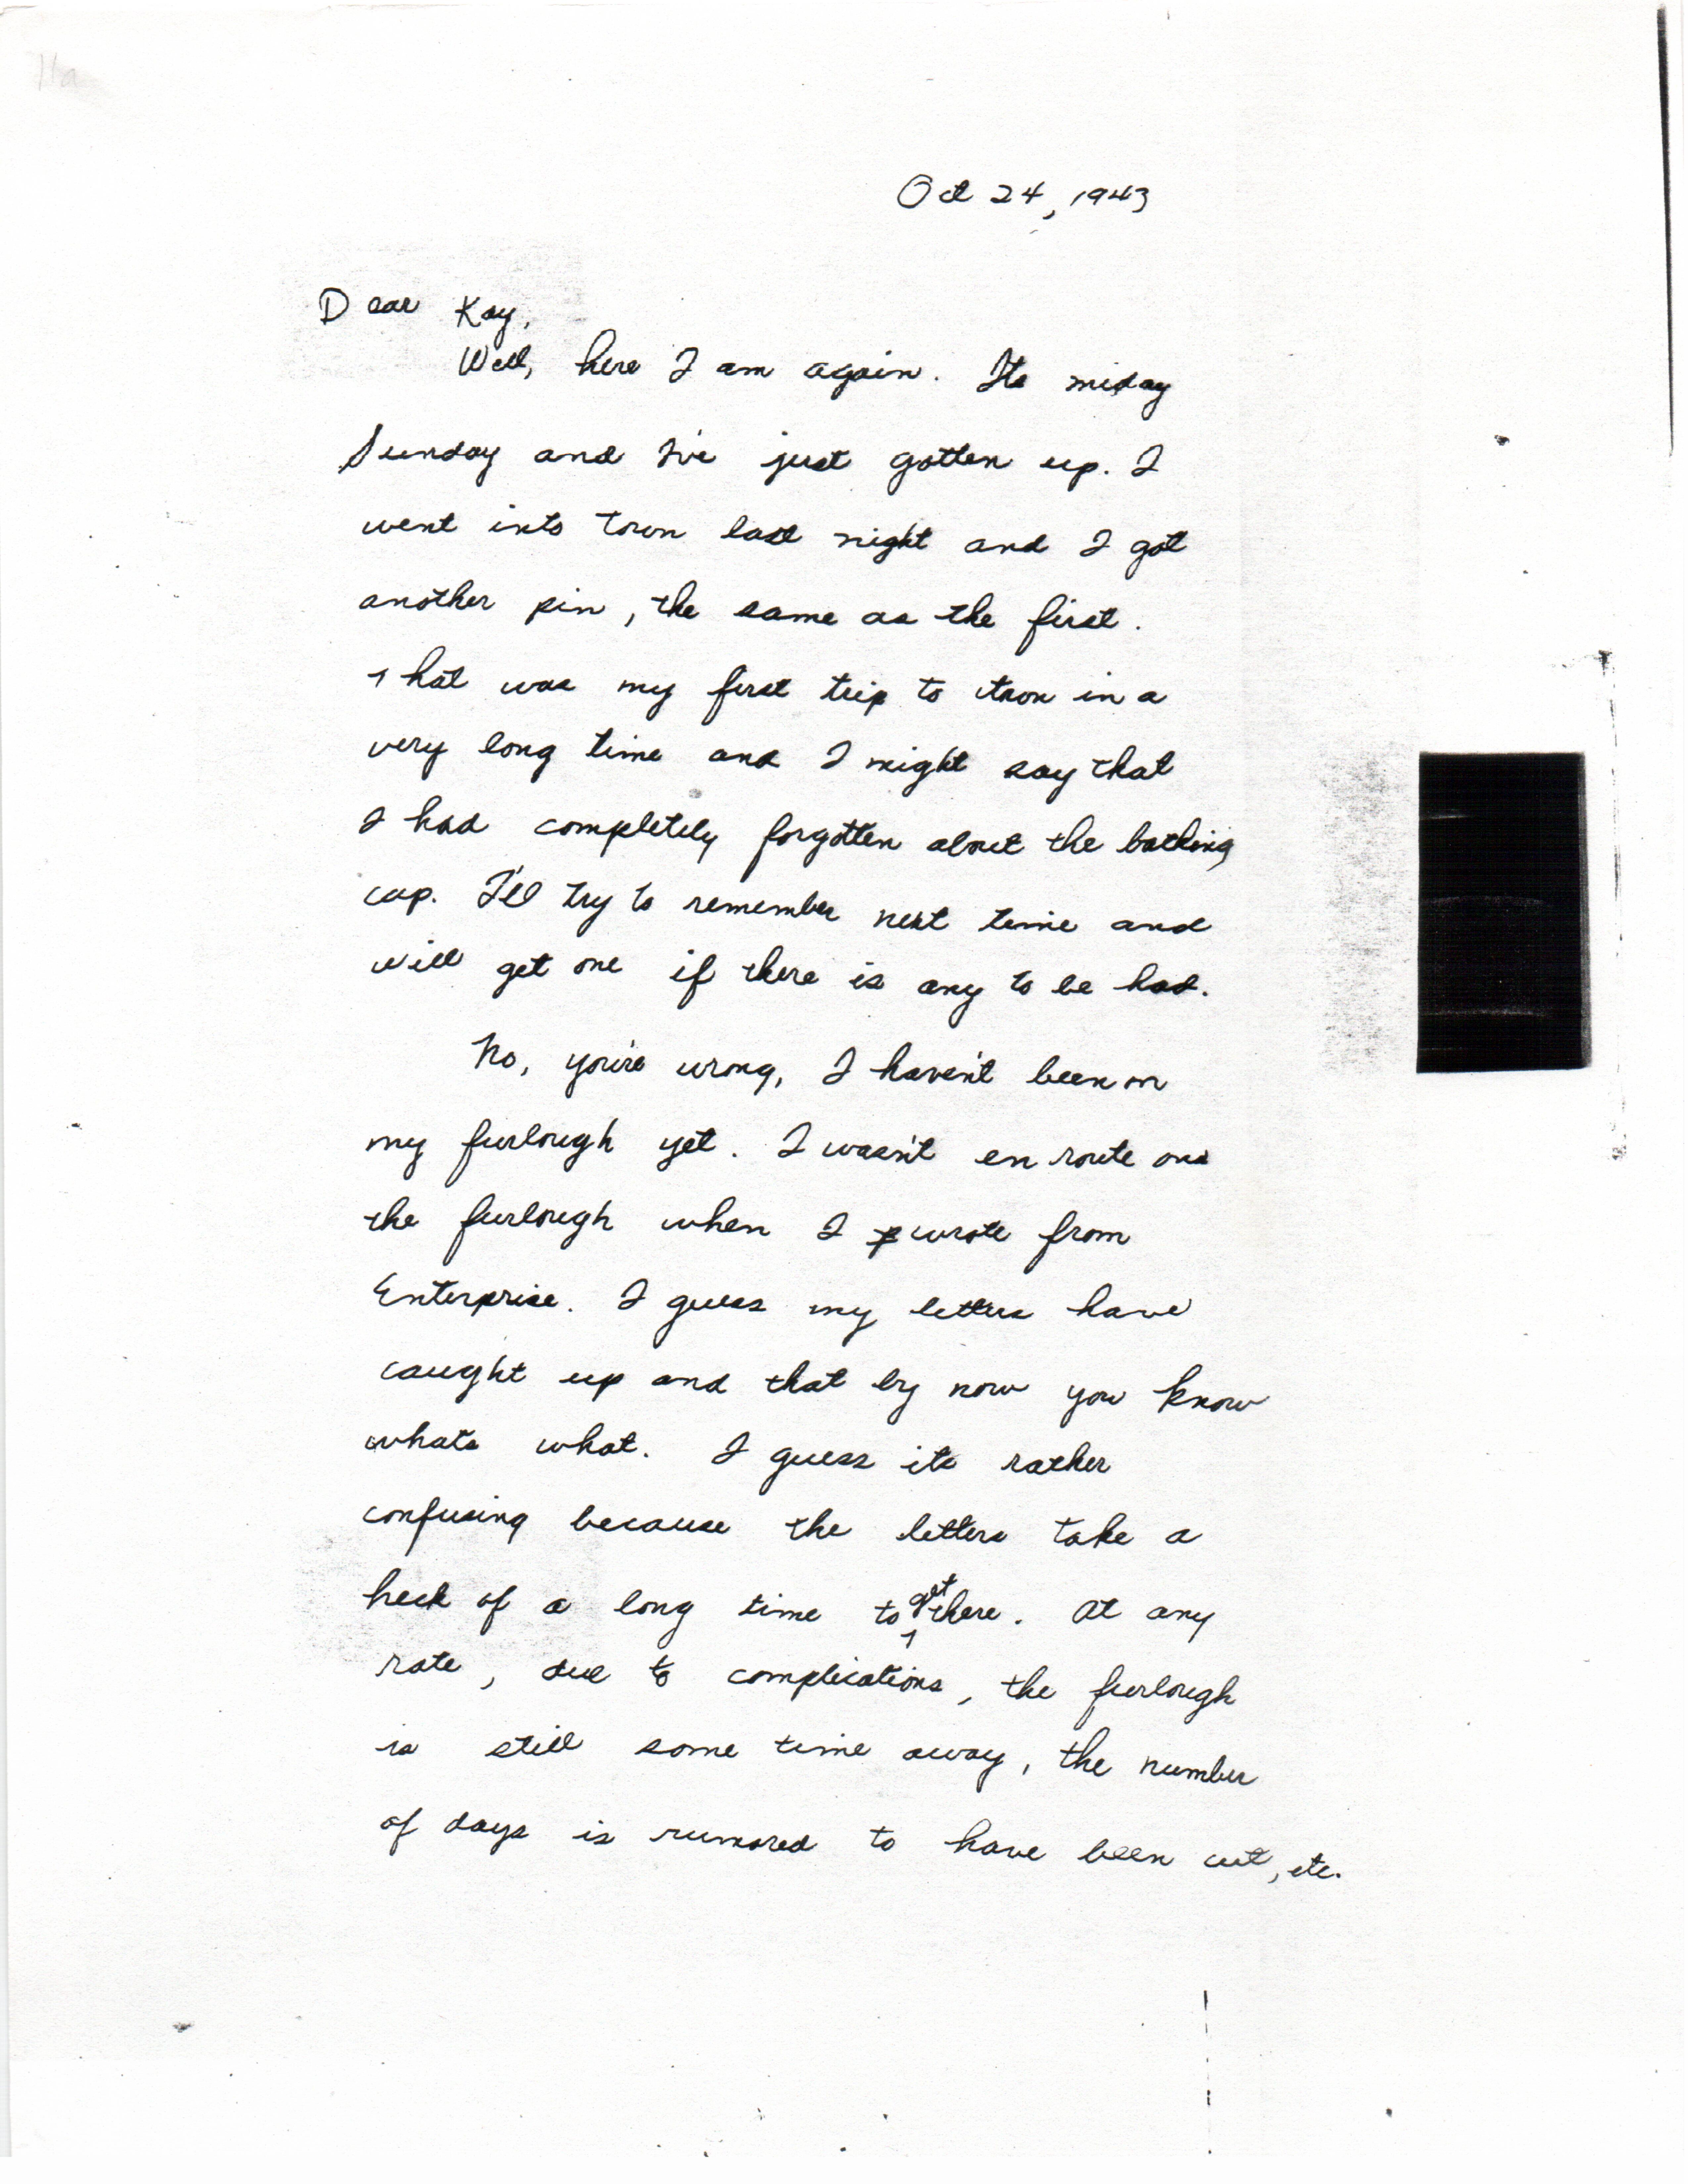 11a
Oct 24, 1943
Dear Kay,
Well, here I am again. Its miday
Sunday and I've just gotten up. I
went into town last night and I got
another pin, the same as the first.
That was my first trip to town in a
very long time and I might say that
I had completely forgotten about the bathing
cap. I'll try to remember next time and
will get one if there is any to be had.
No, you're wrong, I haven't been on
my furlough yet. I wasn't en route on
the furlough when I wrote from
Enterprise. I guess my letters have
caught up and that by now you know
whats what. I guess its rather
confusing because the letters take a
heck of a long time to get there. At any
rate, due to complications, the furlough
is still some time away, the number
of days is rumored to have been cut, etc.